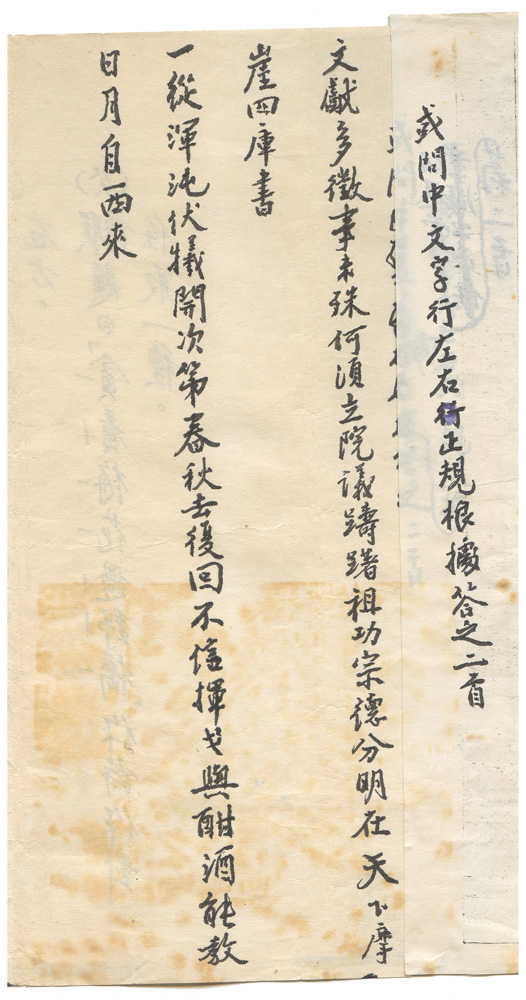 或問中文字行左右衍正規根據答之二首
文獻多徵事未殊何須立院議躊躇祖功宗德分明在天下摩
崖四庫書
一從渾沌伏犧開次第春秋去復回不信揮戈與酣酒能教
日月自西來